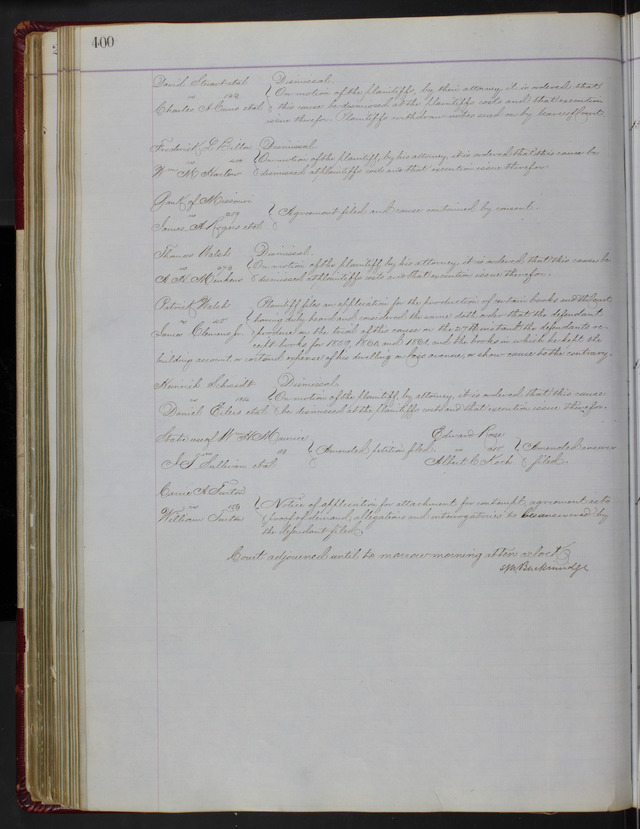 400
David Stuart et al Dismissal
vs 144 On motion of the plaintiffs, by their attorney, it is ordered that
Charles A et al this cause be dismissed at the plaintiffs costs and that execution
issue therefor. Plaintiffs withdraw notes sued on by leave of Court.
Frederick L Dismissal
vs On motion of the plaintiff, by his attorney, it is ordered that this cause be
Wm M Harlow dismissed at plaintiffs costs and that execution issue therefor.
Bank of Missouri
vs 259 Agreement filed and cause continued by consent.
James A Rogers et al
Thomas Walsh Dismissal
vs 272 On motion of the plaintiff, by his attorney, it is ordered that this cause be
A. H. dismissed at plaintiffs costs and that execution issue therefor.
Patrick Walsh Plaintiff files an application for the production of certain books and the Court
vs 45 having duly heard and considered the same doth order that the defendant
James Clemens Jr. produce on the trial of this cause on the 27th instant the defendants re-
ceipt books for 1859, 1860 and 1861, and the books in which he kept the
building account or cost and expense of his dwelling on avenue, or show cause to the contrary.
Heinrich Schmidt Dismissal
vs 124 On motion of the plaintiff, by attorney, it is ordered that this cause
Daniel Eilers et al be dismissed at the plaintiffs costs and that execution issue therefor.
State use of Wm H Maurice Edward Rose
vs Amended petition filed. vs Amended answer
J. J. Sullivan et al Albert C Koch filed.
Carrie A Tutor
vs 159 Notice of application for attachment for contempt, agreement as to
William Tutor proof of demand, allegations and interrogatories to be answered by
the defendant filed.
Court adjourned until to morrow morning at ten o'clock
Breckinridge